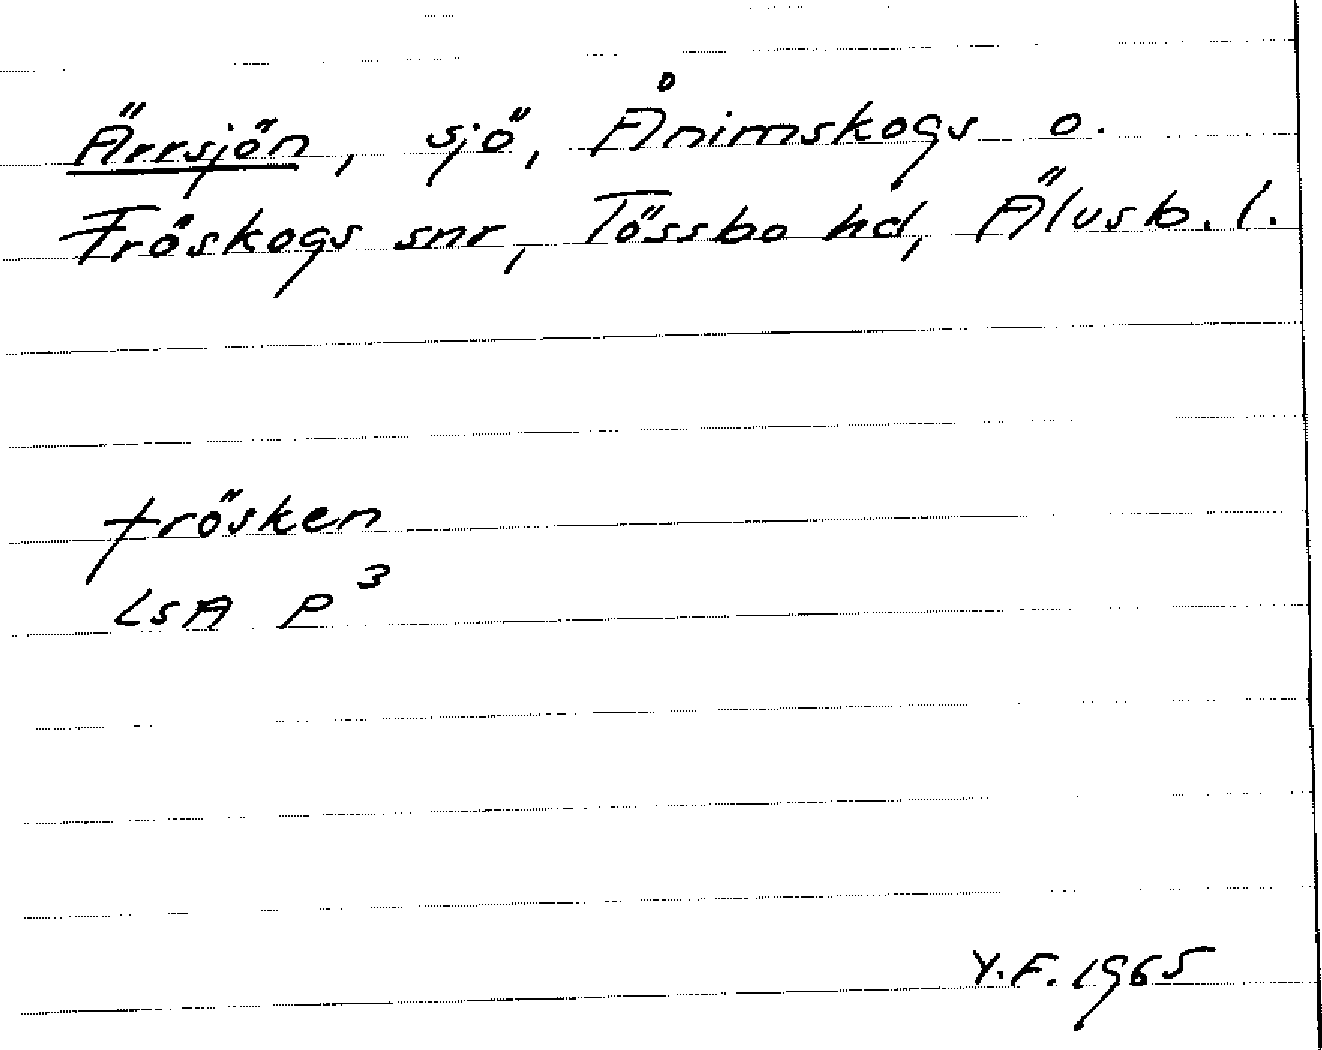 Ärrsjön, sjö, Ånimskogs o.
Fröskogs snr, Tössbo hd, Älvsb. l.
frösken
LSA P³
Y.F. 1965